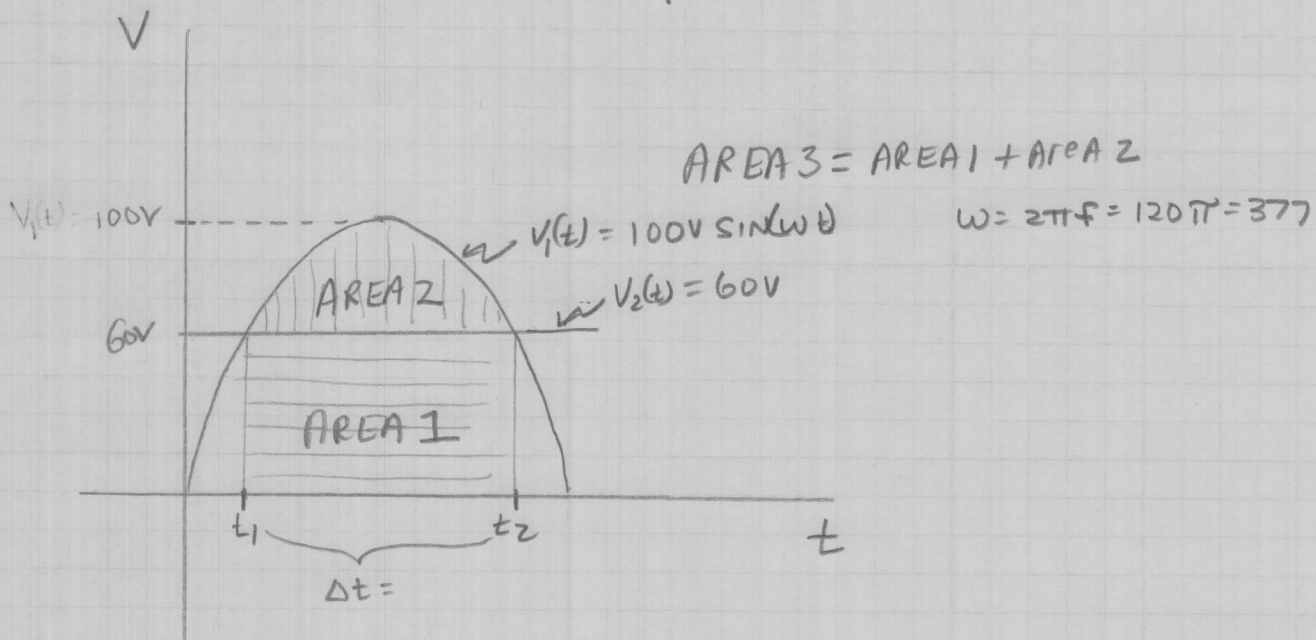 V
AREA 3 = AREA 1 + AreA 2
V₁(t) = 100V
V₁(t) = 100V SIN(ωt)
ω = 2πf = 120π = 377
AREA 2
V₂(t) = 60V
60V
AREA 1
t₁
t₂
t
Δt =